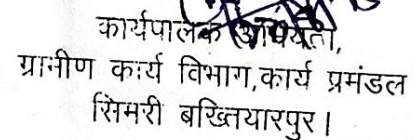 कार्यपालक अभियंता,
ग्रामीण कार्य विभाग,कार्य प्रमंडल
सिमरी बख्तियारपुर।